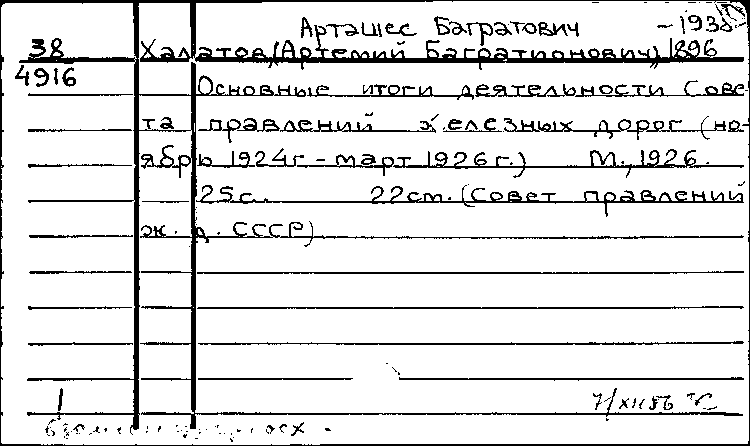 Арташес Багратович - 1938
38 Халатов, (Артемий Багратионович), 1896
4916
Основные итоги деятельности Сове-
та правлений железных дорог (но-
ябрь 1924г - март 1926 г.) М., 1926.
25с. 22см. (Совет правлений
ж. д. СССР)
7/XII 86